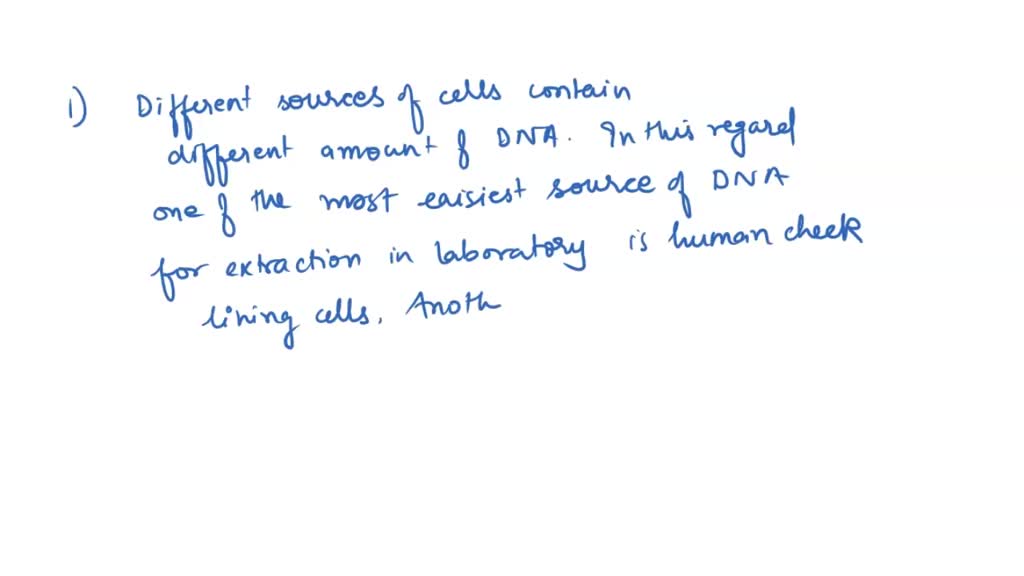 1) Different sources of cells contain
different amount of DNA. In this regard
one of the most eaisiest source of DNA
for extraction in laboratory is human cheek
lining cells. Anoth